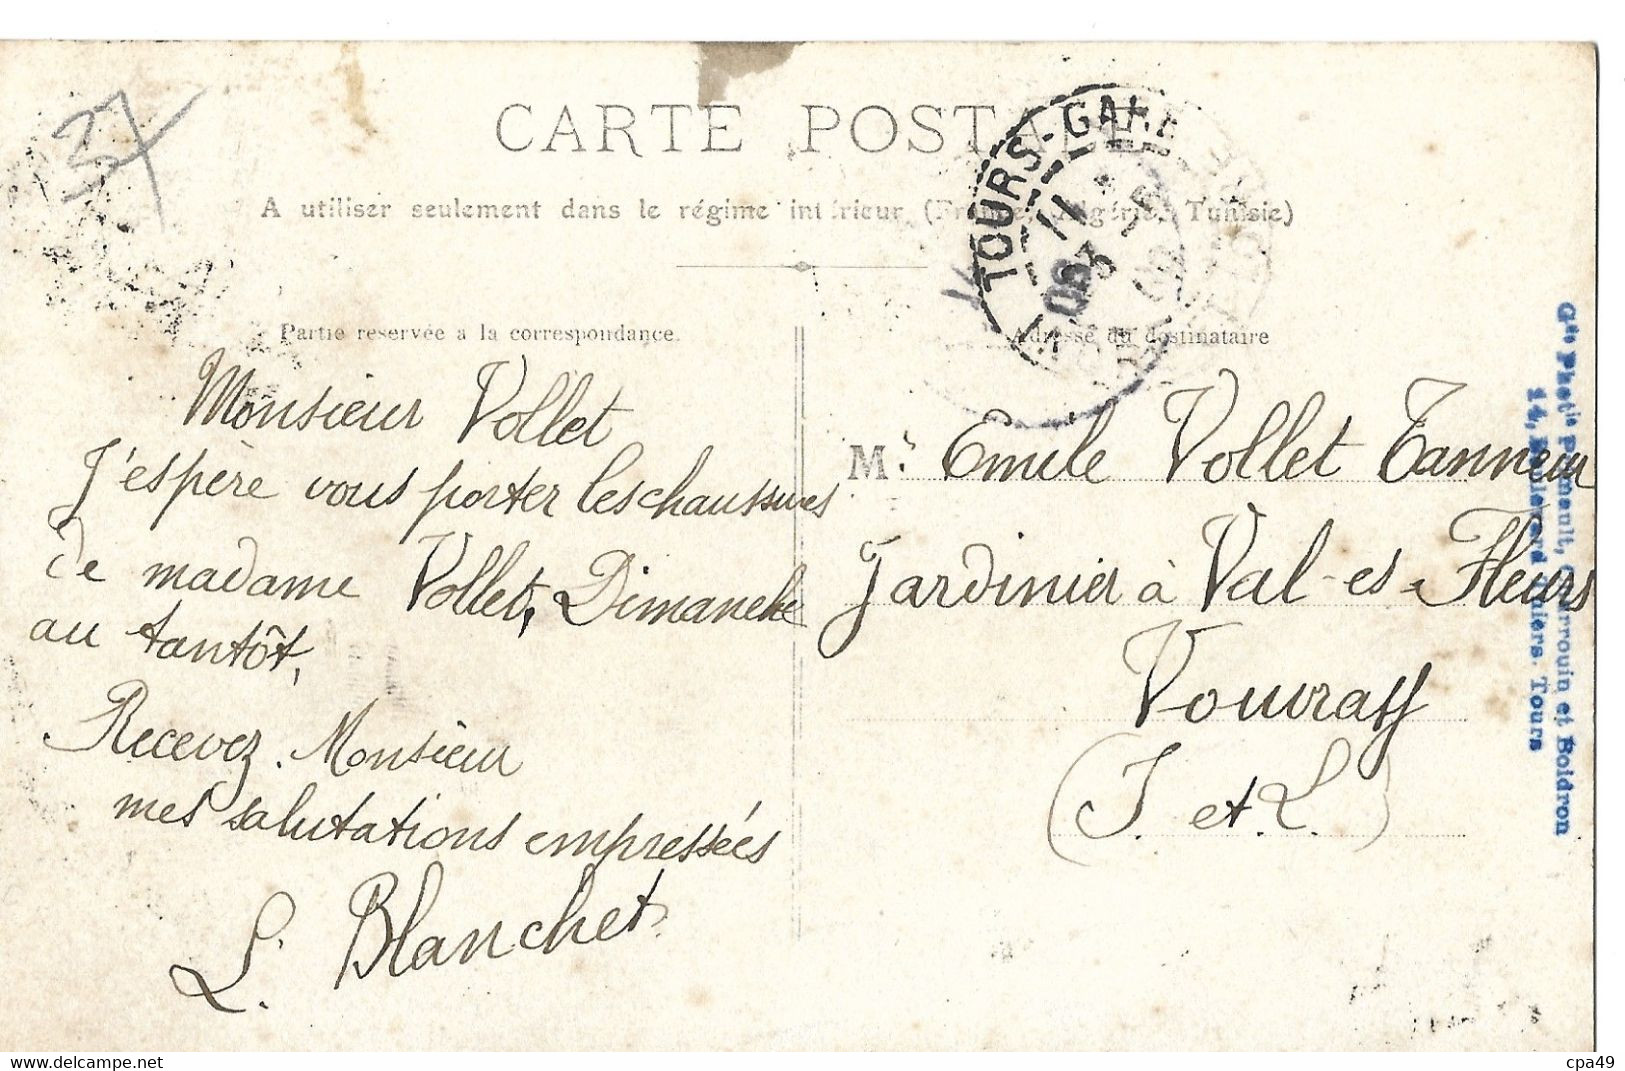 37
CARTE POSTALE
A utiliser seulement dans le régime intérieur (France, Algérie, Tunisie)
TOURS-GARE
11
3
08
Partie reservée a la correspondance.
Adresse du destinataire
Monsieur Vollet
J'espère vous porter les chaussures
de madame Vollet, Dimanche
au tantôt,
Recevez. Monsieur
mes salutations empressées
L. Blanchet
Mr Emile Vollet Tanneur
Jardinier à Val-es-Fleurs
Vouvray
(I. et. L.)
14, Boulevard Thiers. Tours
et Boidron
cpa49